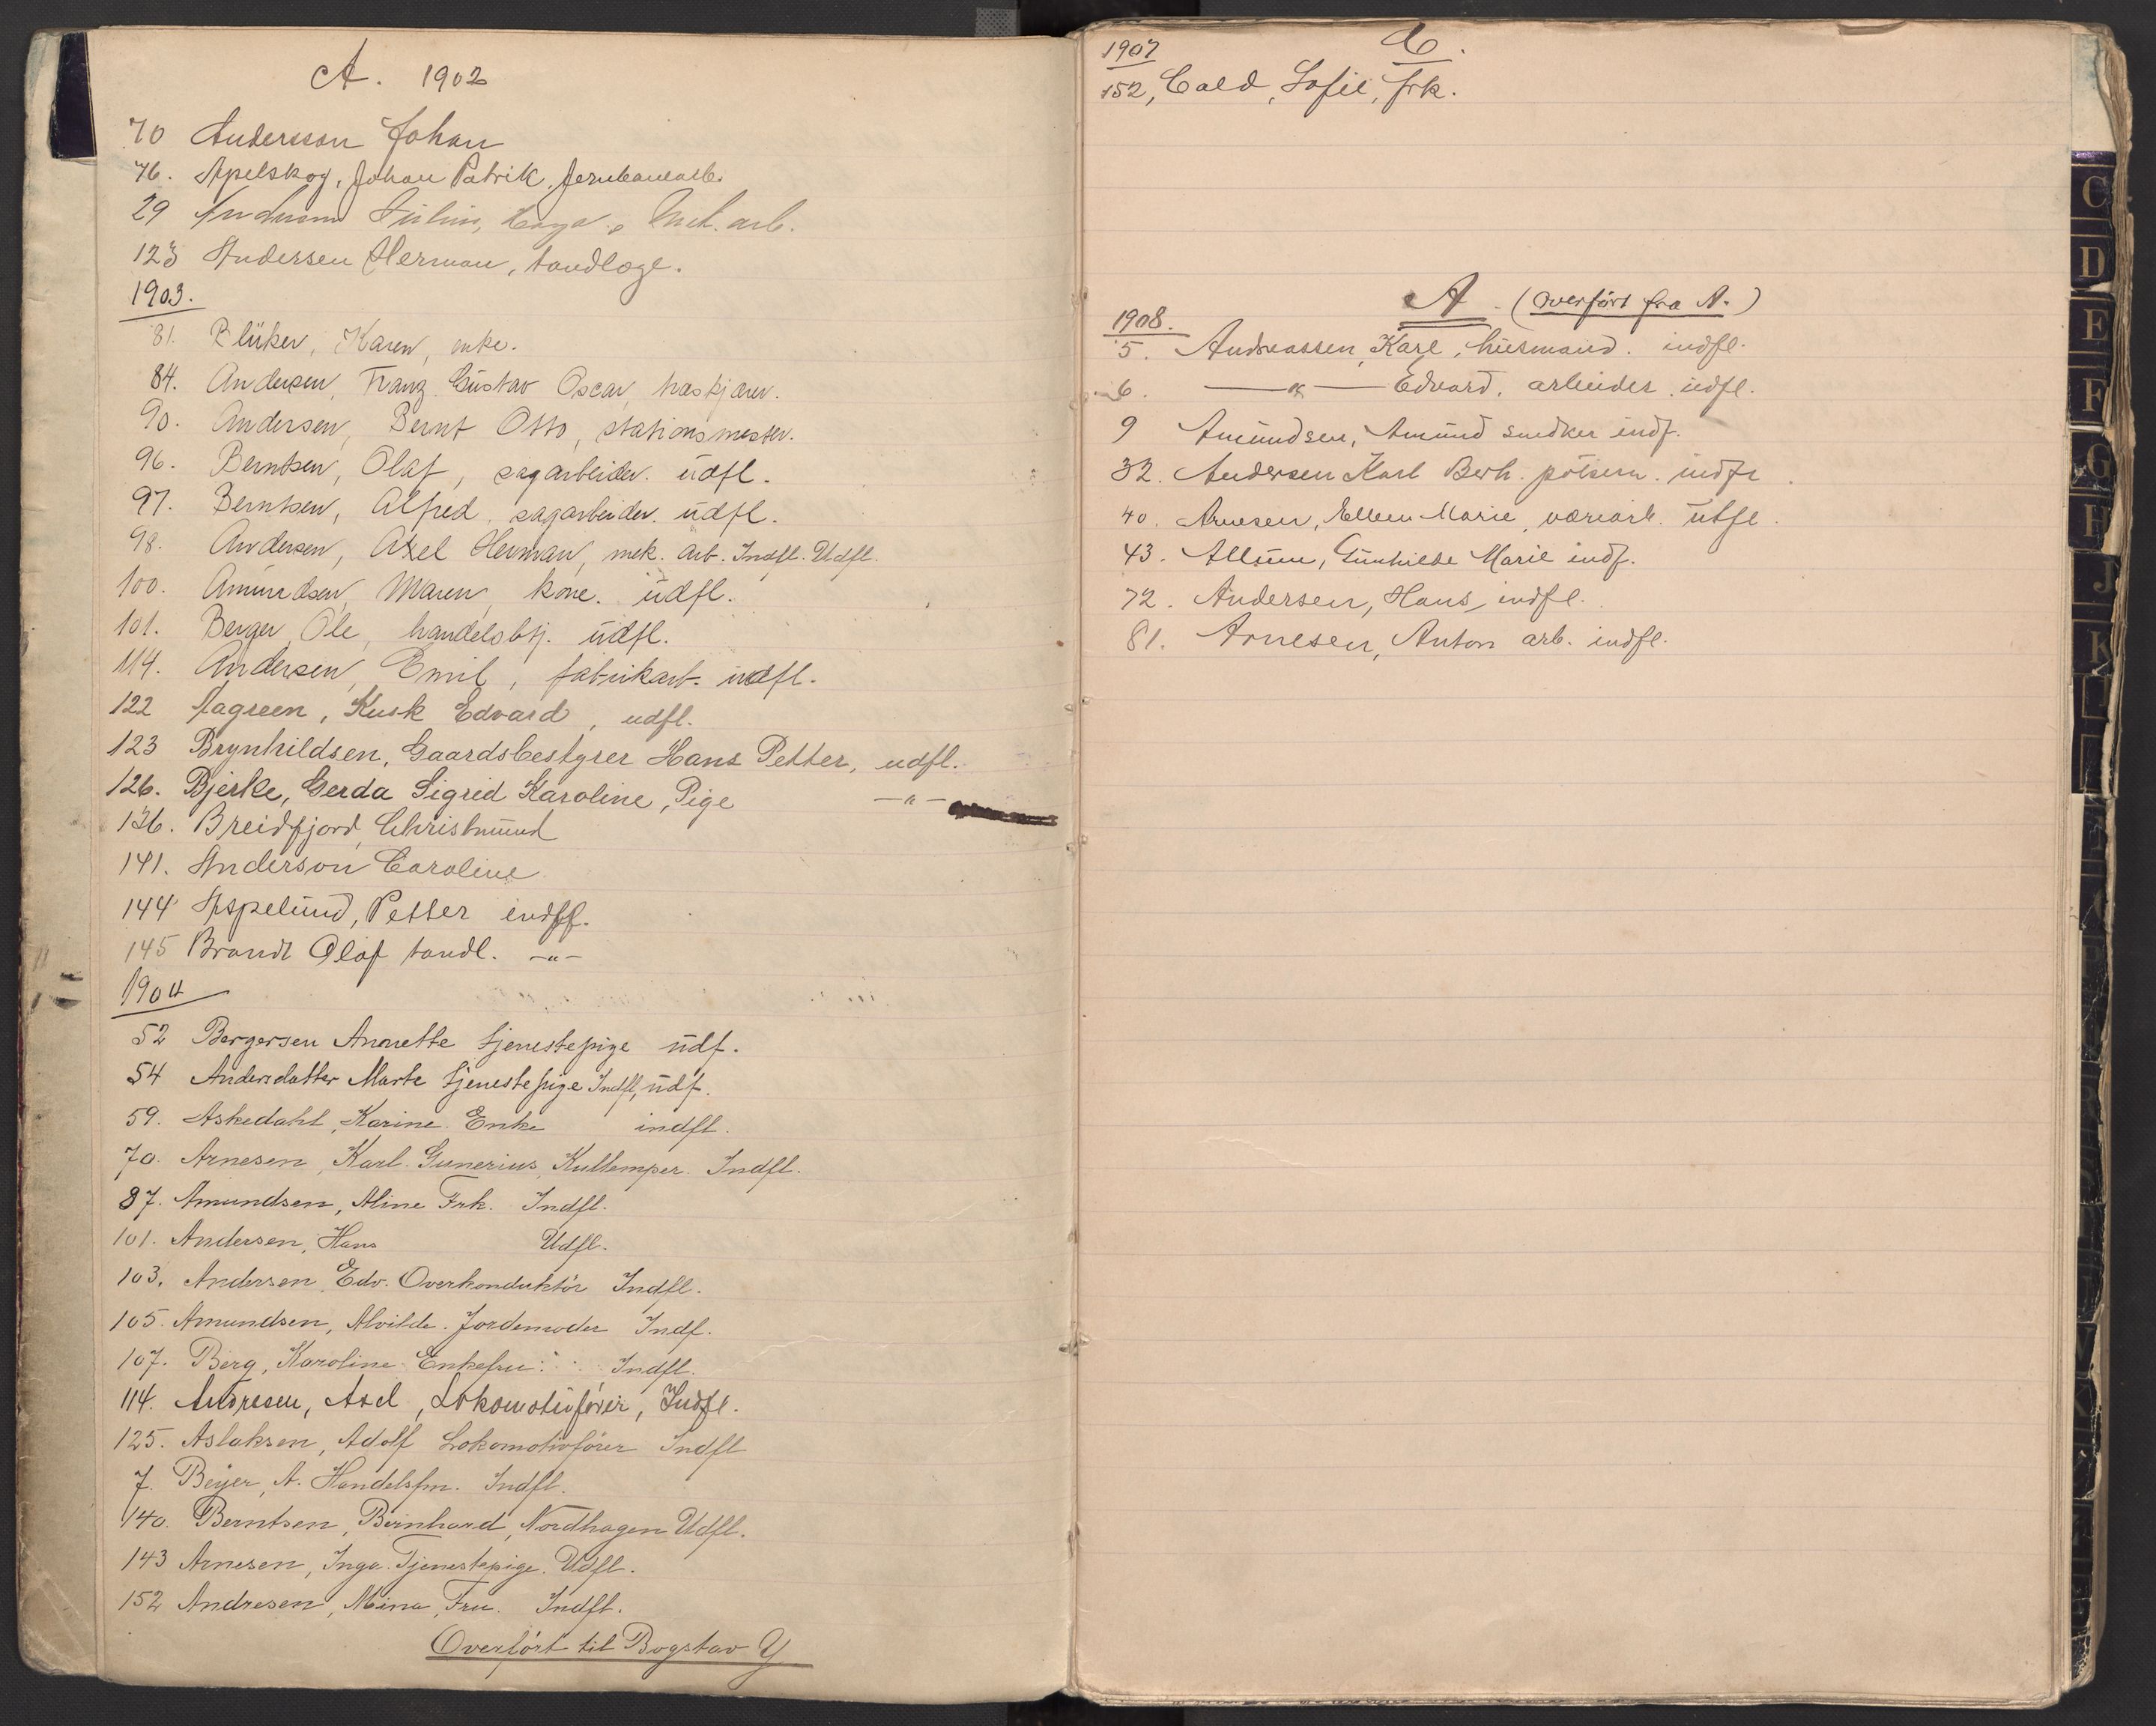 A. 1902
70 Andersson Johan
76. Apelskog, Johan Patrik, Jernbanearb.
29 mek. arb.
123 Andersen Herman, tandlæge.
1903.
81. Blüker, Karen, enke.
84. Andersen, Franz Gustav Oscar,
90. Andersen, Bernt Otto, stationsmester.
96. Berntsen, Olaf, sagarbeider. udfl.
97. Berntsen, Alfred, sagarbeider. udfl.
98. Andersen, Axel Herman, mek. arb. Indfl. Udfl.
100. Amundsen, Maren, kone. udfl.
101. Berger, Ole, handelsbtj. udfl.
114. Andersen, Emil, fabrikarb. indfl.
122 Aagreen, Kusk Edvard, udfl.
123 Brynhildsen, Gaardsbestyrer Hans Petter, udfl.
126. Bjerke, Gerda Sigrid Karoline, Pige —"—
136. Breidfjord, Christmund
141. Anderson Caroline
144 Aspelund, Petter indfl.
145 Brandt Olaf tandl. -"-
1904
52 Bergersen Annette tjenestepige udf.
54 Andersdatter Marte tjenestepige Indfl, udf.
59. Askedahl, Karine. Enke indfl.
70. Arnesen, Karl Gunerius, Kullemper. Indfl.
87. Amundsen, Aline Frk. Indfl.
101. Andersen, Hans Udfl.
103. Andersen, Edv. Overkonduktör Indfl.
105. Amundsen, Alvilde. Jordemoder Indf.
107. Berg, Karoline Enkefru. Indfl.
114. Andresen, Axel, Lokomotivfører, Indfl.
125. Aslaksen, Adolf Lokomotivfører Indfl
7. Beyer, A. Handelsfm. Indfl.
140. Berntsen, Bernhard, Nordhagen Udfl.
143 Arnesen, Inga. Tjenestepige. Udfl.
152 Andresen, Mina, Fru. Indfl.
Overfört til Bogstav Y
1907 C.
152, Cald, Sofie, frk.
A. (overført fra A.)
1908.
5. Andreassen, Karl, husmand. indfl.
6. —"— Edvard. arbeider. udfl.
9 Amundsen, Amund snedker indf.
32. Andersen Karl Berh. indfl
40. Arnesen, Ellen Marie, utfl.
43. Allum, Gunhilde Marie indf.
72. Andersen, Hans, indfl.
81. Arnesen, Anton arb. indfl.
C
D
E
F
G
H
J
K